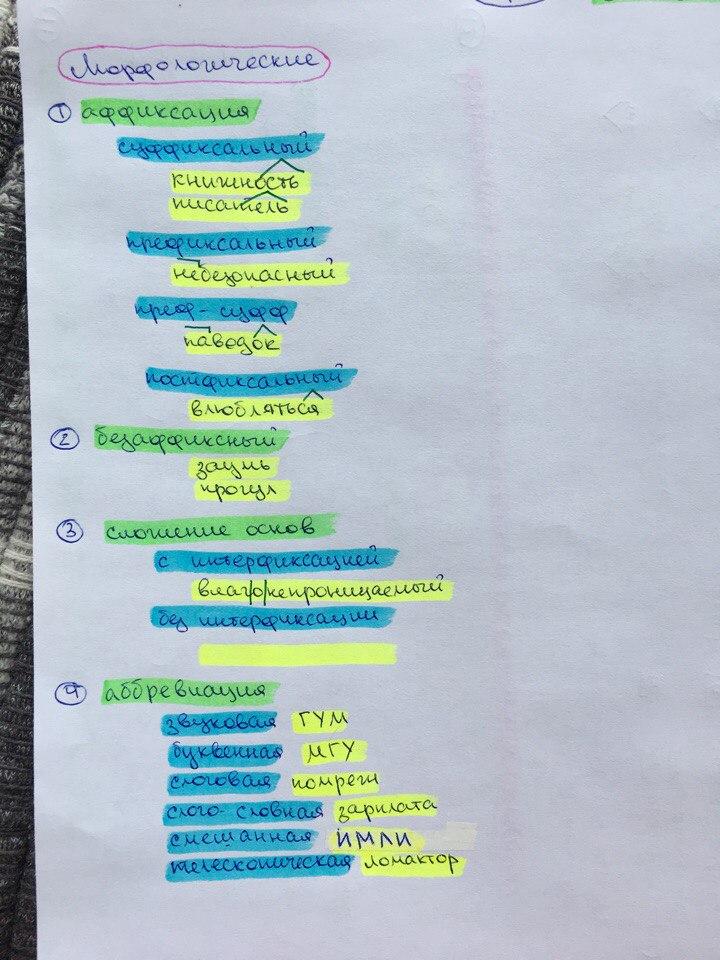 Морфологические
① аффиксация
суффиксальный
книжность
писатель
префиксальный
небезопасный
преф-суфф
паводок
постфиксальный
влюбляться
② безаффиксный
заумь
прогул
③ сложение основ
с интерфиксацией
влагонепроницаемый
без интерфиксации
④ аббревиация
звуковая ГУМ
буквенная МГУ
слоговая помреж
слого-словная зарплата
смешанная ИМЛИ
телескопическая ломактор